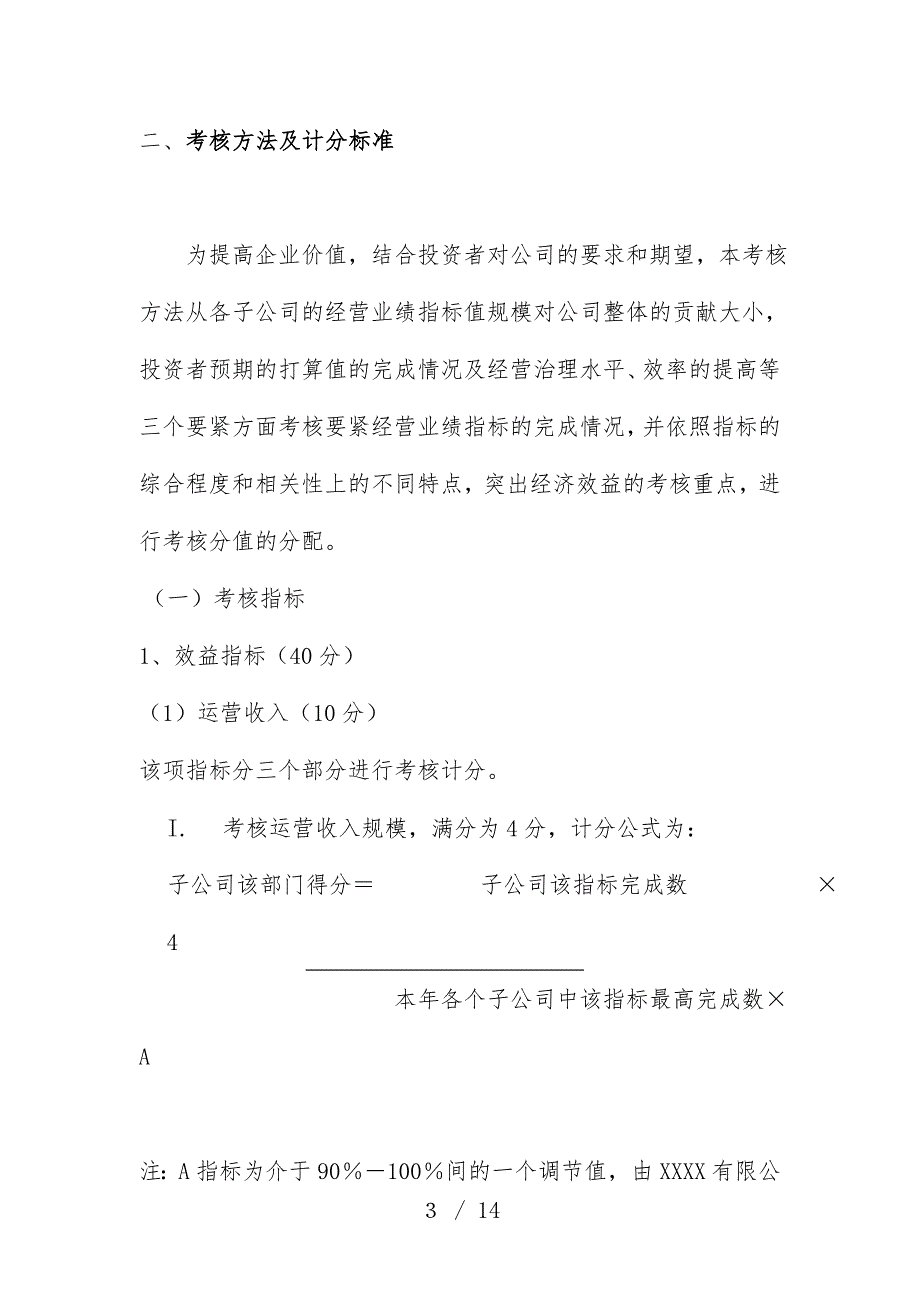 二、考核方法及计分标准
为提高企业价值，结合投资者对公司的要求和期望，本考核
方法从各子公司的经营业绩指标值规模对公司整体的贡献大小，
投资者预期的打算值的完成情况及经营治理水平、效率的提高等
三个要紧方面考核要紧经营业绩指标的完成情况，并依照指标的
综合程度和相关性上的不同特点，突出经济效益的考核重点，进
行考核分值的分配。
（一）考核指标
1、效益指标（40分）
（1）运营收入（10分）
该项指标分三个部分进行考核计分。
I. 考核运营收入规模，满分为4分，计分公式为：
子公司该部门得分＝ 子公司该指标完成数 ×
4
本年各个子公司中该指标最高完成数×
A
注：A指标为介于90％－100％间的一个调节值，由XXXX有限公
3 / 14